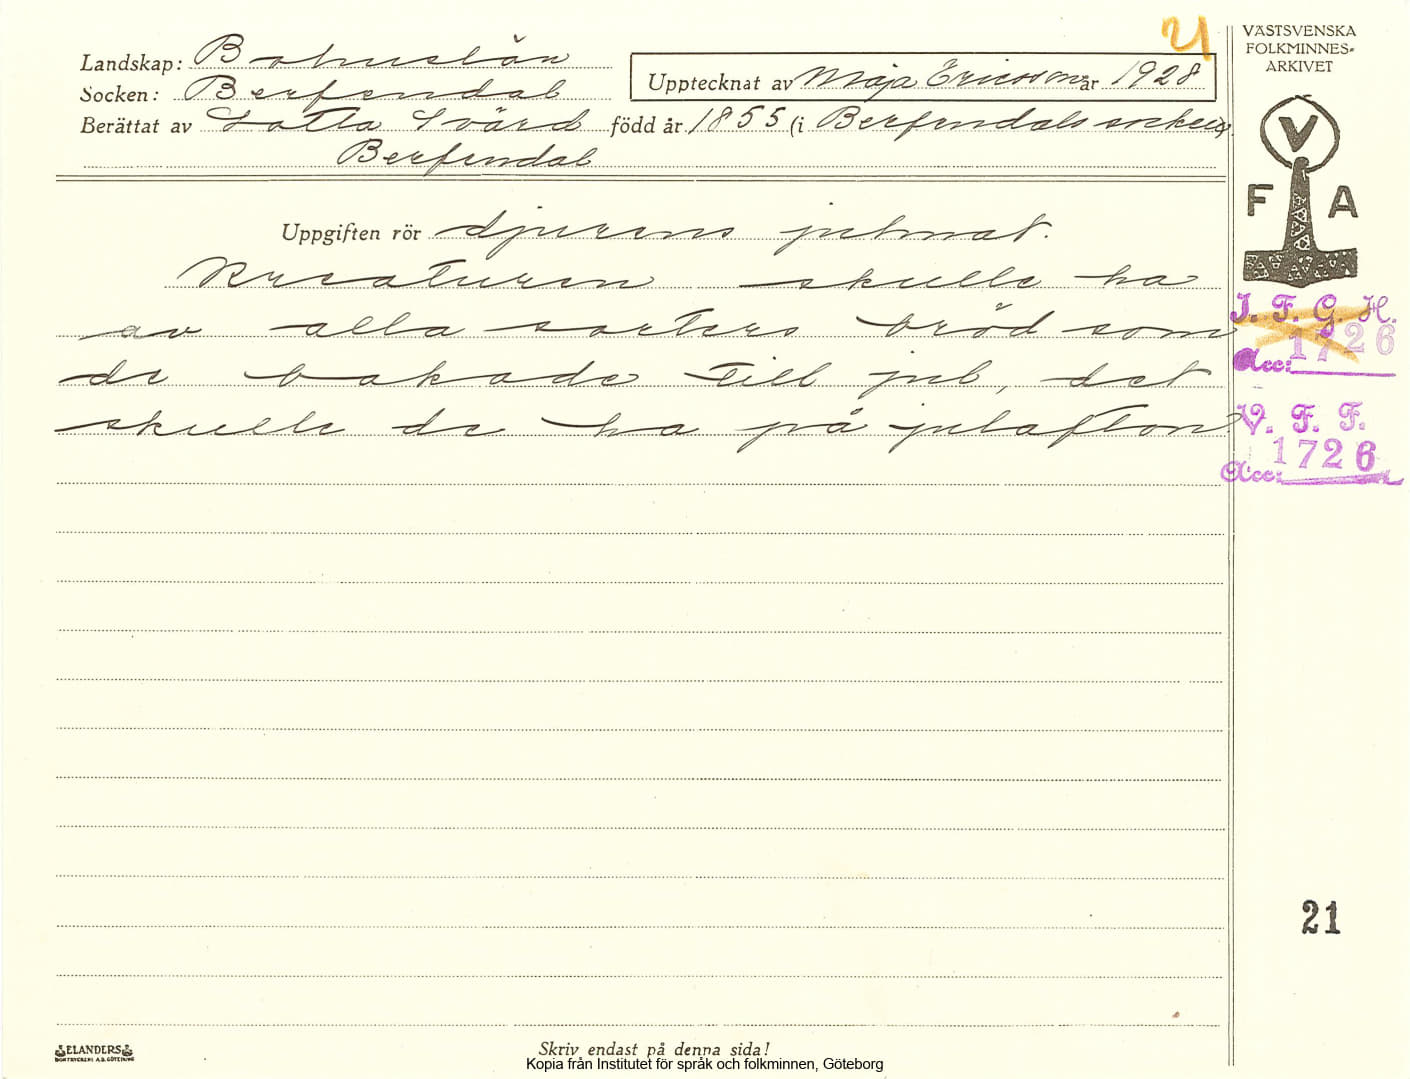 21
VÄSTSVENSKA
FOLKMINNES-
ARKIVET
Landskap: Bohuslän
Socken: Berfendal
Upptecknat av Maja Ericsson år 1928
Berättat av Lotta Svärd född år 1855 (i Berfendals socken)
Berfendal
V
F A
Uppgiften rör djurens julmat.
Kreaturen skulle ha
av alla sorters bröd som
de bakade till jul, det
skulle de ha på julafton
I. F. G. H.
1726
Acc:
V. F. F.
1726
Acc:
21
ELANDERS
BOKTRYCKERI A.B. GÖTEBORG
Skriv endast på denna sida!
Kopia från Institutet för språk och folkminnen, Göteborg